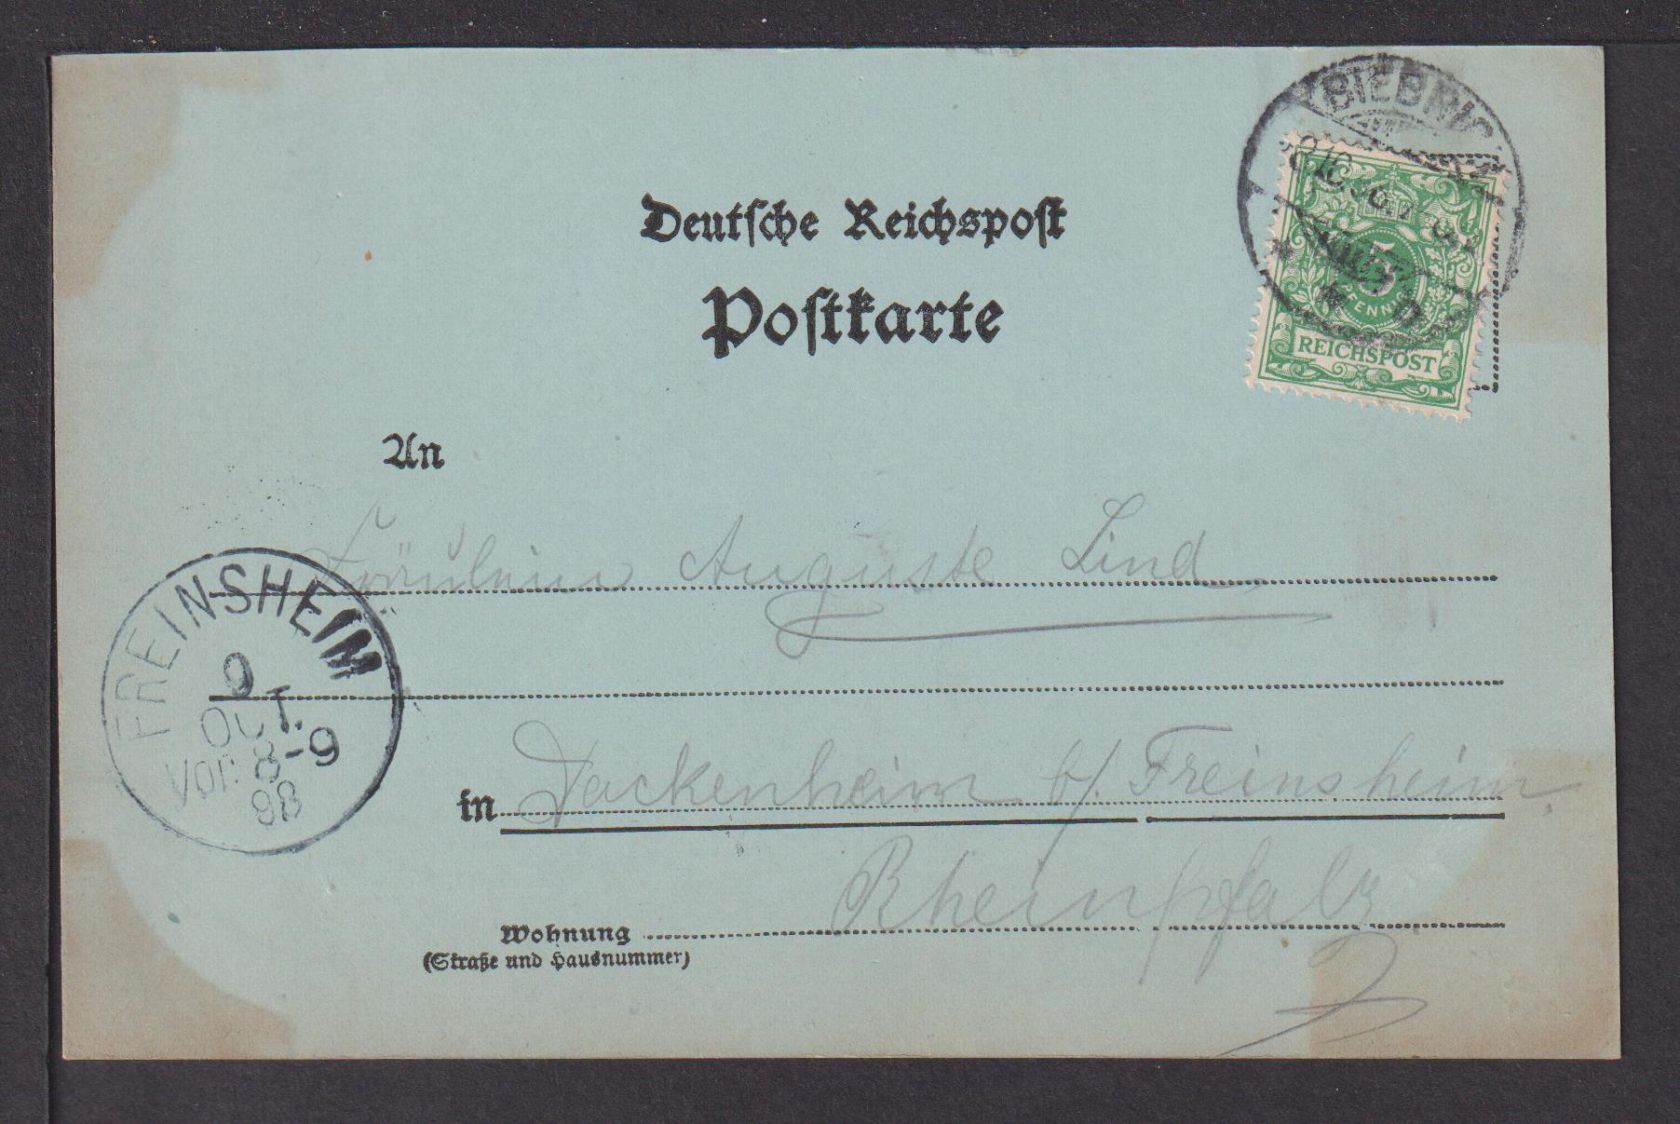 Deutsche Reichspost
Postkarte
BIEBRICH
5
PFENNIG
REICHSPOST
An
Fräulein Auguste Lind
FREINSHEIM
9
OCT.
Vor. 8-9
98
in Dackenheim b/. Freinsheim
Rheinpfalz
Wohnung
(Straße und Hausnummer)